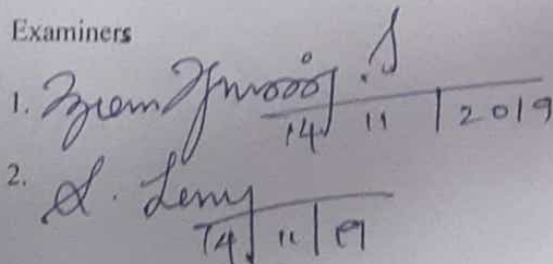 Examiners
1.
14 11 | 2019
2. S. Leny
14 | 11 | 19